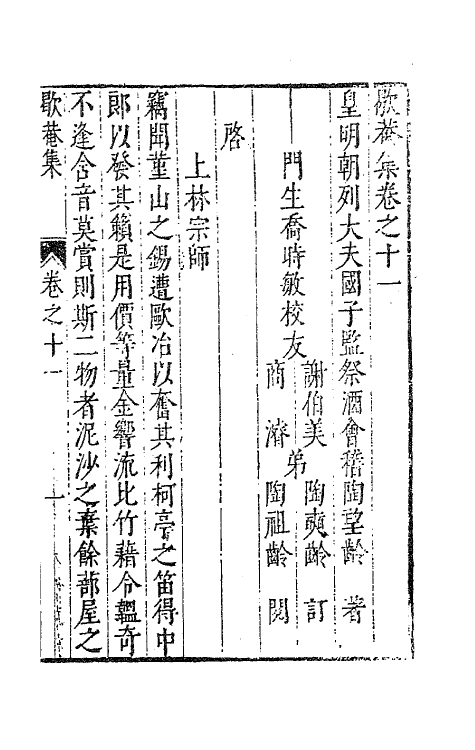 歇菴集卷之十一
皇明朝列大夫國子監祭酒會稽陶望齡 著
門生喬時敏校友
謝伯美
商濬
弟
陶奭齡 訂
陶祖齡 閱
啓
上林宗師
竊聞董山之錫遭歐冶以奮其利柯亭之笛得中
郎以發其籟是用價等量金響流比竹藉令韞奇
不逢含音莫賞則斯二物者泥沙之棄餘蔀屋之
歇菴集 卷之十一 一